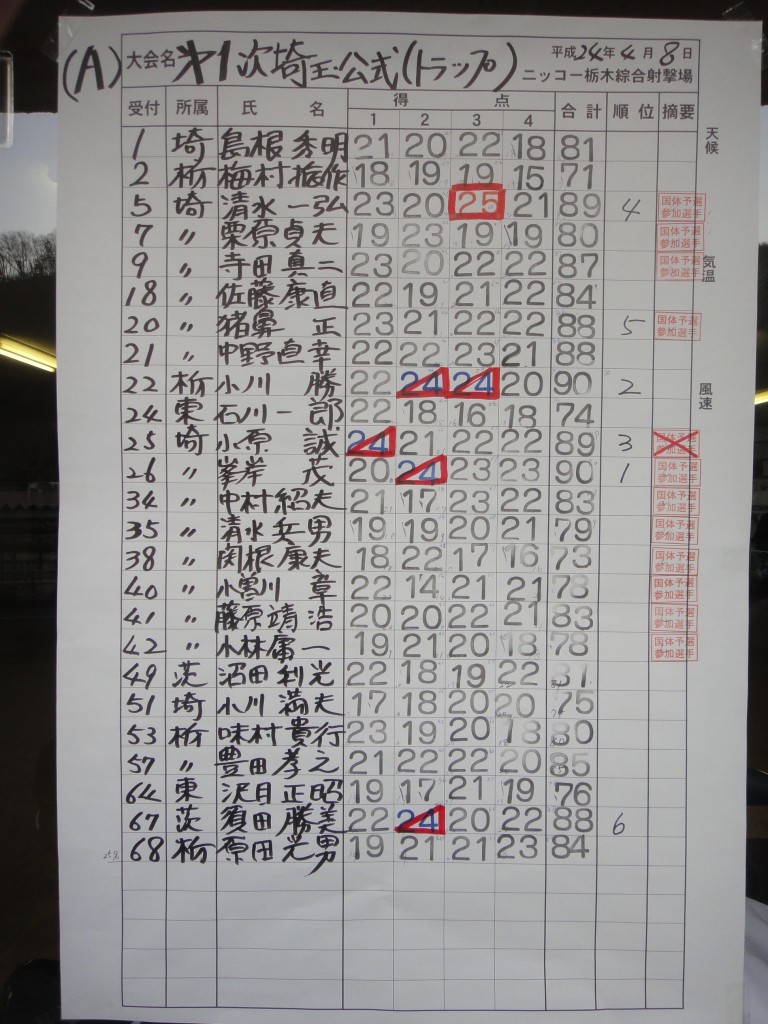 (A) 大会名 オ1次埼玉公式(トラップ) 平成24年4月8日
ニッコー栃木綜合射撃場
受付 所属 氏 名 得 点 合計 順位 摘要
1 2 3 4
天候
1 埼 島根秀明 21 20 22 18 81
2 栃 梅村 18 19 19 15 71
5 埼 清水一弘 23 20 25 21 89 4 国体予選 参加選手
7 〃 栗原貞夫 19 23 19 19 80 国体予選 参加選手
9 〃 寺田真二 23 20 22 22 87 国体予選 参加選手
気温
18 〃 佐藤康直 22 19 21 22 84
20 〃 猪鼻 正 23 21 22 22 88 5 国体予選 参加選手
21 〃 中野直幸 22 22 23 21 88
22 栃 小川 勝 22 24 24 20 90 2
風速
24 東 石川一郎 22 18 16 18 74
25 埼 小原 誠 24 21 22 22 89 3 国体予選 参加選手
26 〃 峯岸 茂 20 24 23 23 90 1 国体予選 参加選手
34 〃 中村紹夫 21 17 23 22 83 国体予選 参加選手
35 〃 清水兵男 19 19 20 21 79 国体予選 参加選手
38 〃 関根康夫 18 22 17 16 73 国体予選 参加選手
40 〃 小曽川 章 22 14 21 21 78 国体予選 参加選手
41 〃 藤原靖浩 20 20 22 21 83 国体予選 参加選手
42 〃 小林庸一 19 21 20 18 78 国体予選 参加選手
49 茨 沼田利光 22 18 19 22 81
51 埼 小川満夫 17 18 20 20 75
53 栃 味村貴行 23 19 20 18 80
57 〃 豊田孝之 21 22 22 20 85
64 東 沢目正昭 19 17 21 19 76
67 茨 須田勝美 22 24 20 22 88 6
68 栃 原田光男 19 21 21 23 84